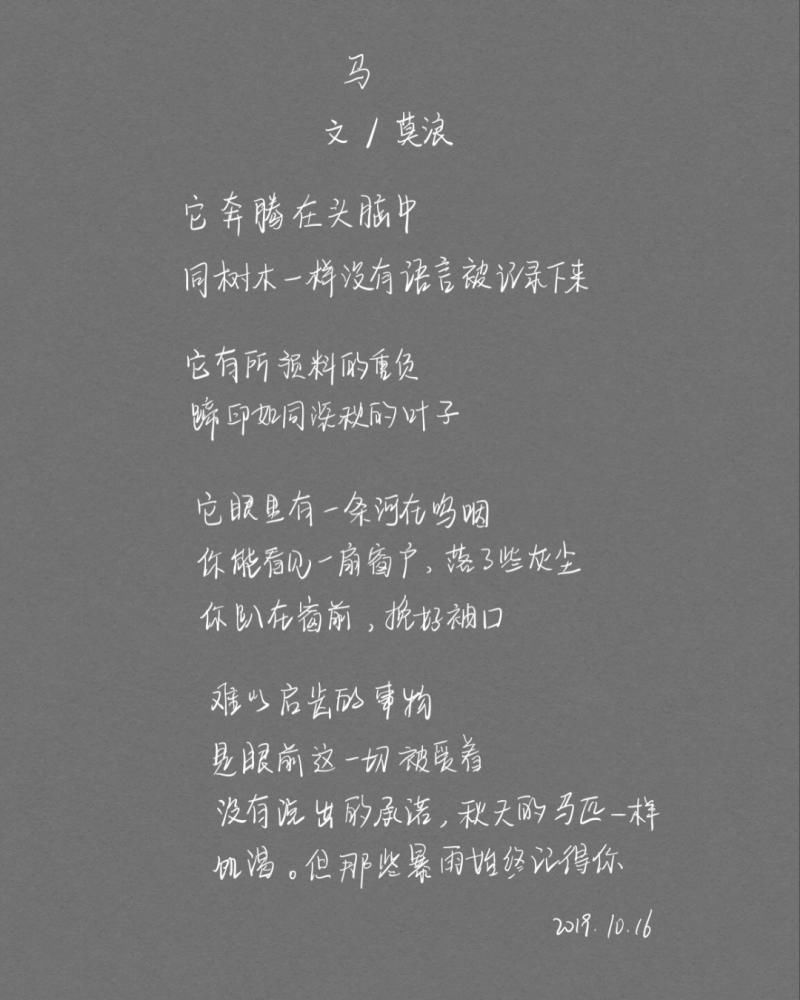 马
文 / 莫浪
它奔腾在头脑中
同树木一样没有语言被记录下来
它有所预料的重负
蹄印如同深秋的叶子
它眼里有一条河在呜咽
你能看见一扇窗户，落了些灰尘
你趴在窗前，挽好袖口
难以启齿的事物
是眼前这一切被爱着
没有说出的承诺，秋天的马匹一样
饥渴。但那些暴雨始终记得你
2019.10.16